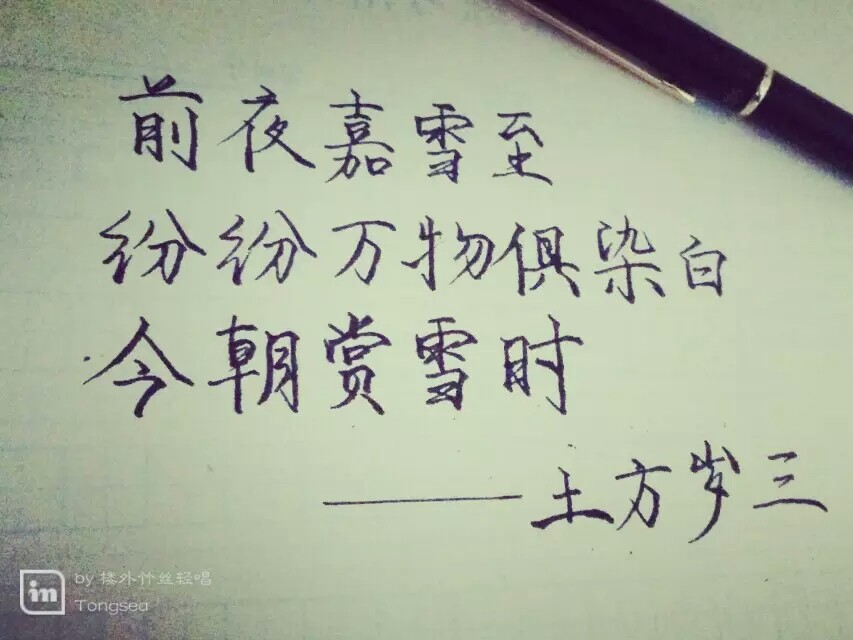 前夜嘉雪至
纷纷万物俱染白
今朝赏雪时
——土方岁三
im
by 楼外竹丝轻唱
Tongsea